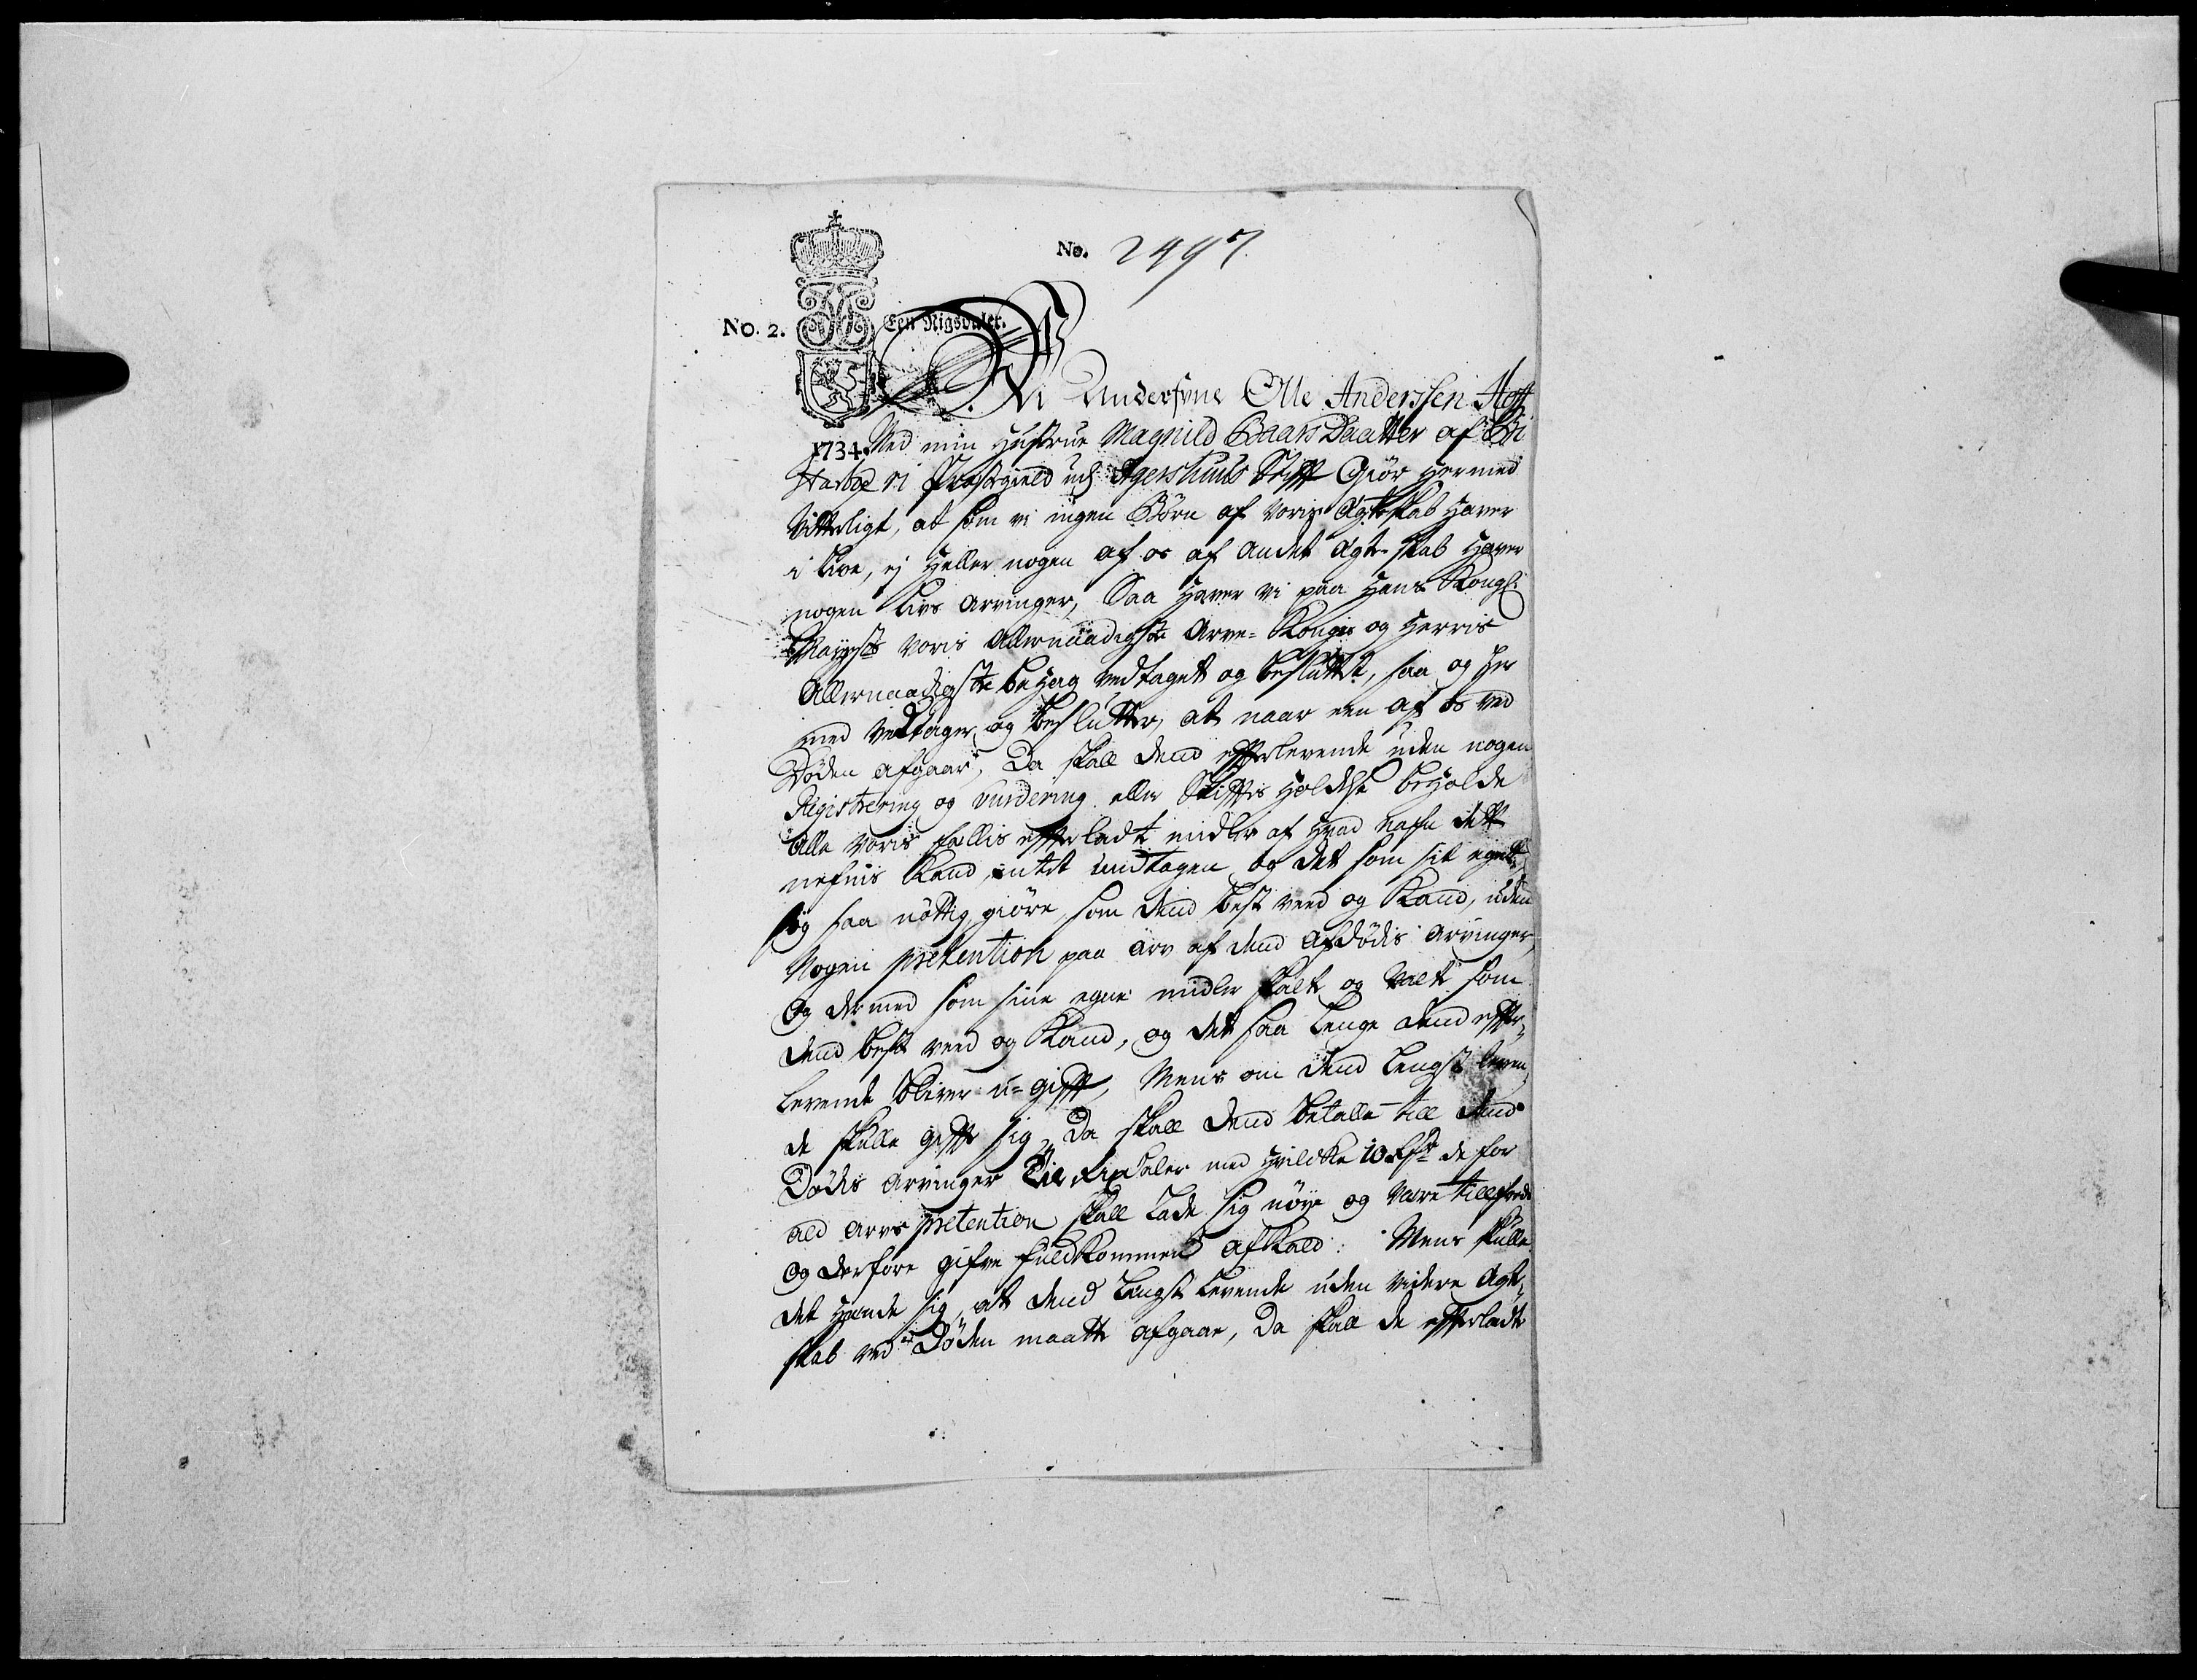 No. 2497.
No. 2. Een Rigsdaler.
Vi Undersvne Olle Anderssen Hoff
1734. Med min Hustrue Magnild Baars Daatter af
Præstegield udj Agershuus Stifft Giør hermed
Vitterligt, at som vi ingen Børn af voris Ægteskab haver
i Live, ej heller nogen af os af andet Ægte skab haver
nogen Livs Arvinger, Saa haver vi paa Hans Kongl:
Mayests voris Allernaadigste Arve-Kongis og Herris
Allernaadigste behag vedtaget og besluttet, saa og her
med vedtager og beslutter, at naar een af os ved
Døden afgaar, Da skall dend efterlevende uden nogen
Registrering og vurdering eller Skifftis holdelse beholde
Alle voris fællis efterladte midler af hvad nafn dett
nefnis kand, intet undtagen og det som sit eget
sig saa nøttig giøre, som dend best veed og kand, uden
Nogen pretention paa arv af dend afdødis Arvinger,
Og dermed som sine egne midler skalte og valte som
dend best veed og kand, og det saa lenge dend effter¬
levende bliver u-gifft, Mens om dend lengst leven¬
de skulle giffte sig, Da skall dend betalle till dend
Dødis Arvinger Tie Rixdaler med hvilcke 10 Rdr de for
ald arvs pretention skall lade sig nøye og være tillfreds
og derfore gifve fuldkommen afkald: Mens skulle
det hende sig, at dend lengst levende uden videre Ægte¬
skab ved Døden maatte afgaae, Da skall de efterladte